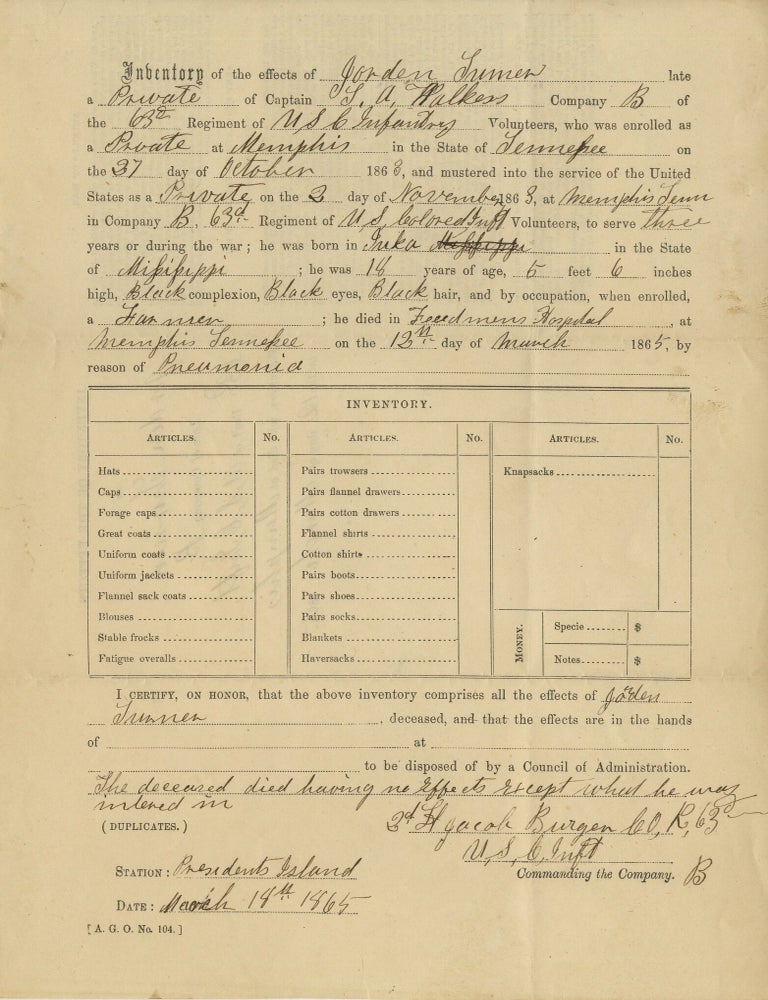 Inventory of the effects of Jorden Turner late
a Private of Captain T. A. Walkers Company B of
the 63d Regiment of U S C Infantry Volunteers, who was enrolled as
a Private at Memphis in the State of Tennessee on
the 27 day of October 1863, and mustered into the service of the United
States as a Private on the 2 day of November 1863, at Memphis Tenn
in Company B, 63d Regiment of U.S. Colored Inft Volunteers, to serve three
years or during the war; he was born in Iuka Mississippi in the State
of Mississippi ; he was 18 years of age, 5 feet 6 inches
high, Black complexion, Black eyes, Black hair, and by occupation, when enrolled,
a Farmer ; he died in Freedmens Hospital, at
Memphis Tennessee on the 12th day of March 1865, by
reason of Pneumonia
INVENTORY.
ARTICLES. No. ARTICLES. No. ARTICLES. No.
Hats Pairs trowsers Knapsacks
Caps Pairs flannel drawers
Forage caps Pairs cotton drawers
Great coats Flannel shirts
Uniform coats Cotton shirts
Uniform jackets Pairs boots
Flannel sack coats Pairs shoes
Blouses Pairs socks MONEY. Specie $
Stable frocks Blankets
Fatigue overalls Haversacks Notes $
I CERTIFY, ON HONOR, that the above inventory comprises all the effects of Jorden
Turner, deceased, and that the effects are in the hands
of at
to be disposed of by a Council of Administration.
The deceased died having no Effects Except what he was
intered in
(DUPLICATES.) 2d Lt Jacob Burgen CO, K, 63
U, S, C, Inft
STATION: Presidents Island
Commanding the Company. B
DATE: March 18th 1865
[A. G. O. No. 104.]